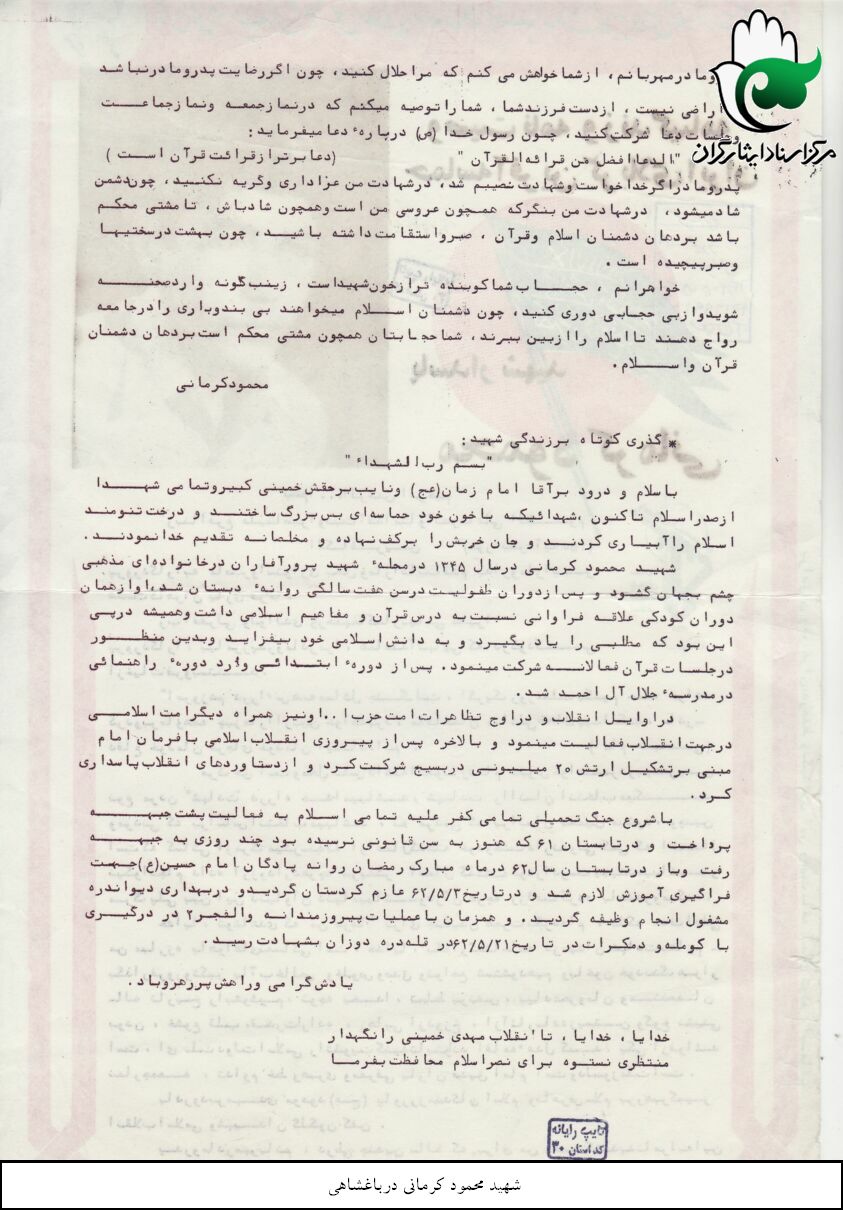 مرکز اسناد ایثارگران
ومادرمهربانم، ازشماخواهش می کنم که مراحلال کنید، چون اگررضایت پدرومادرنباشد
راضی نیست، ازدست فرزندشما، شماراتوصیه میکنم که درنمازجمعه ونمازجماعت
وجلسات دعا شرکت کنید، چون رسول خدا (ص) درباره‌ء دعامیفرماید:
"الدعاافضل من قرائه القرآن" (دعابرترازقرائت قرآن است)
پدرومادراگرخداخواست وشهادت نصیبم شد، درشهادت من عزاداری وگریه نکنید، چون دشمن
شادمیشود، درشهادت من بنگرکه همچون عروسی من است وهمچون شادباش، تامشتی محکم
باشد بردهان دشمنان اسلام وقرآن، صبرواستقامت داشته باشید، چون بهشت درسختیها
وصبرپیچیده است.
خواهرانم، حجاب شماکوبنده ترازخون شهیداست، زینب گونه واردصحنه
شویدوازبی حجابی دوری کنید، چون دشمنان اسلام میخواهند بی بندوباری رادرجامعه
رواج دهند تااسلام راازبین ببرند، شماحجابتان همچون مشتی محکم است بردهان دشمنان
قرآن واسلام.
محمودکرمانی
* گذری کوتاه برزندگی شهید:
"بسم رب الشهداء"
باسلام و درود برآقا امام زمان(عج) ونایب برحقش خمینی کبیروتمامی شهدا
ازصدراسلام تاکنون، شهدائیکه باخون خود حماسه‌ای بس بزرگ ساختند و درخت تنومند
اسلام راآبیاری کردند و جان خریش را برکف نهاده و مخلصانه تقدیم خدانمودند.
شهید محمود کرمانی درسال ۱۳۴۵ درمحله‌ء شهید پرورآفاران درخانواده‌ای مذهبی
چشم بجهان گشود و پس ازدوران طفولیت درسن هفت سالگی روانه‌ء دبستان شد،اوازهمان
دوران کودکی علاقه فراوانی نسبت به درس قرآن و مفاهیم اسلامی داشت وهمیشه درپی
این بود که مطلبی را یاد بگیرد و به دانش اسلامی خود بیفزاید وبدین منظور
درجلسات قرآن فعالانه شرکت مینمود. پس از دوره‌ء ابتدائی وارد دوره‌ء راهنمائی
درمدرسه‌ء جلال آل احمد شد.
دراوایل انقلاب و دراوج تظاهرات امت حزب ا..اونیز همراه دیگرامت اسلامی
درجهت انقلاب فعالیت مینمود و بالاخره پس از پیروزی انقلاب اسلامی بافرمان امام
مبنی برتشکیل ارتش ۲۰ میلیونی دربسیج شرکت کرد و ازدستاوردهای انقلاب پاسداری
کرد.
باشروع جنگ تحمیلی تمامی کفر علیه تمامی اسلام به فعالیت پشت جبهه
پرداخت و درتابستان ۶۱ که هنوز به سن قانونی نرسیده بود چند روزی به جبهه
رفت وباز درتابستان سال۶۲ درماه مبارک رمضان روانه پادگان امام حسین(ع)جهت
فراگیری آموزش لازم شد و درتاریخ۶۲/۵/۳ عازم کردستان گردیدو دربهداری دیواندره
مشغول انجام وظیفه گردید. و همزمان باعملیات پیروزمندانه والفجر۲ در درگیری
با کومله‌و دمکرات در تاریخ۶۲/۵/۲۱در قله‌دره دوزان بشهادت رسید.
یادش گرامی وراهش پررهروباد.
خدایا، خدایا، تا انقلاب مهدی خمینی رانگهدار
منتظری نستوه برای نصراسلام محافظت بفرما
تایپ رایانه
کد استان ۳۰
شهید محمود کرمانی درباغشاهی